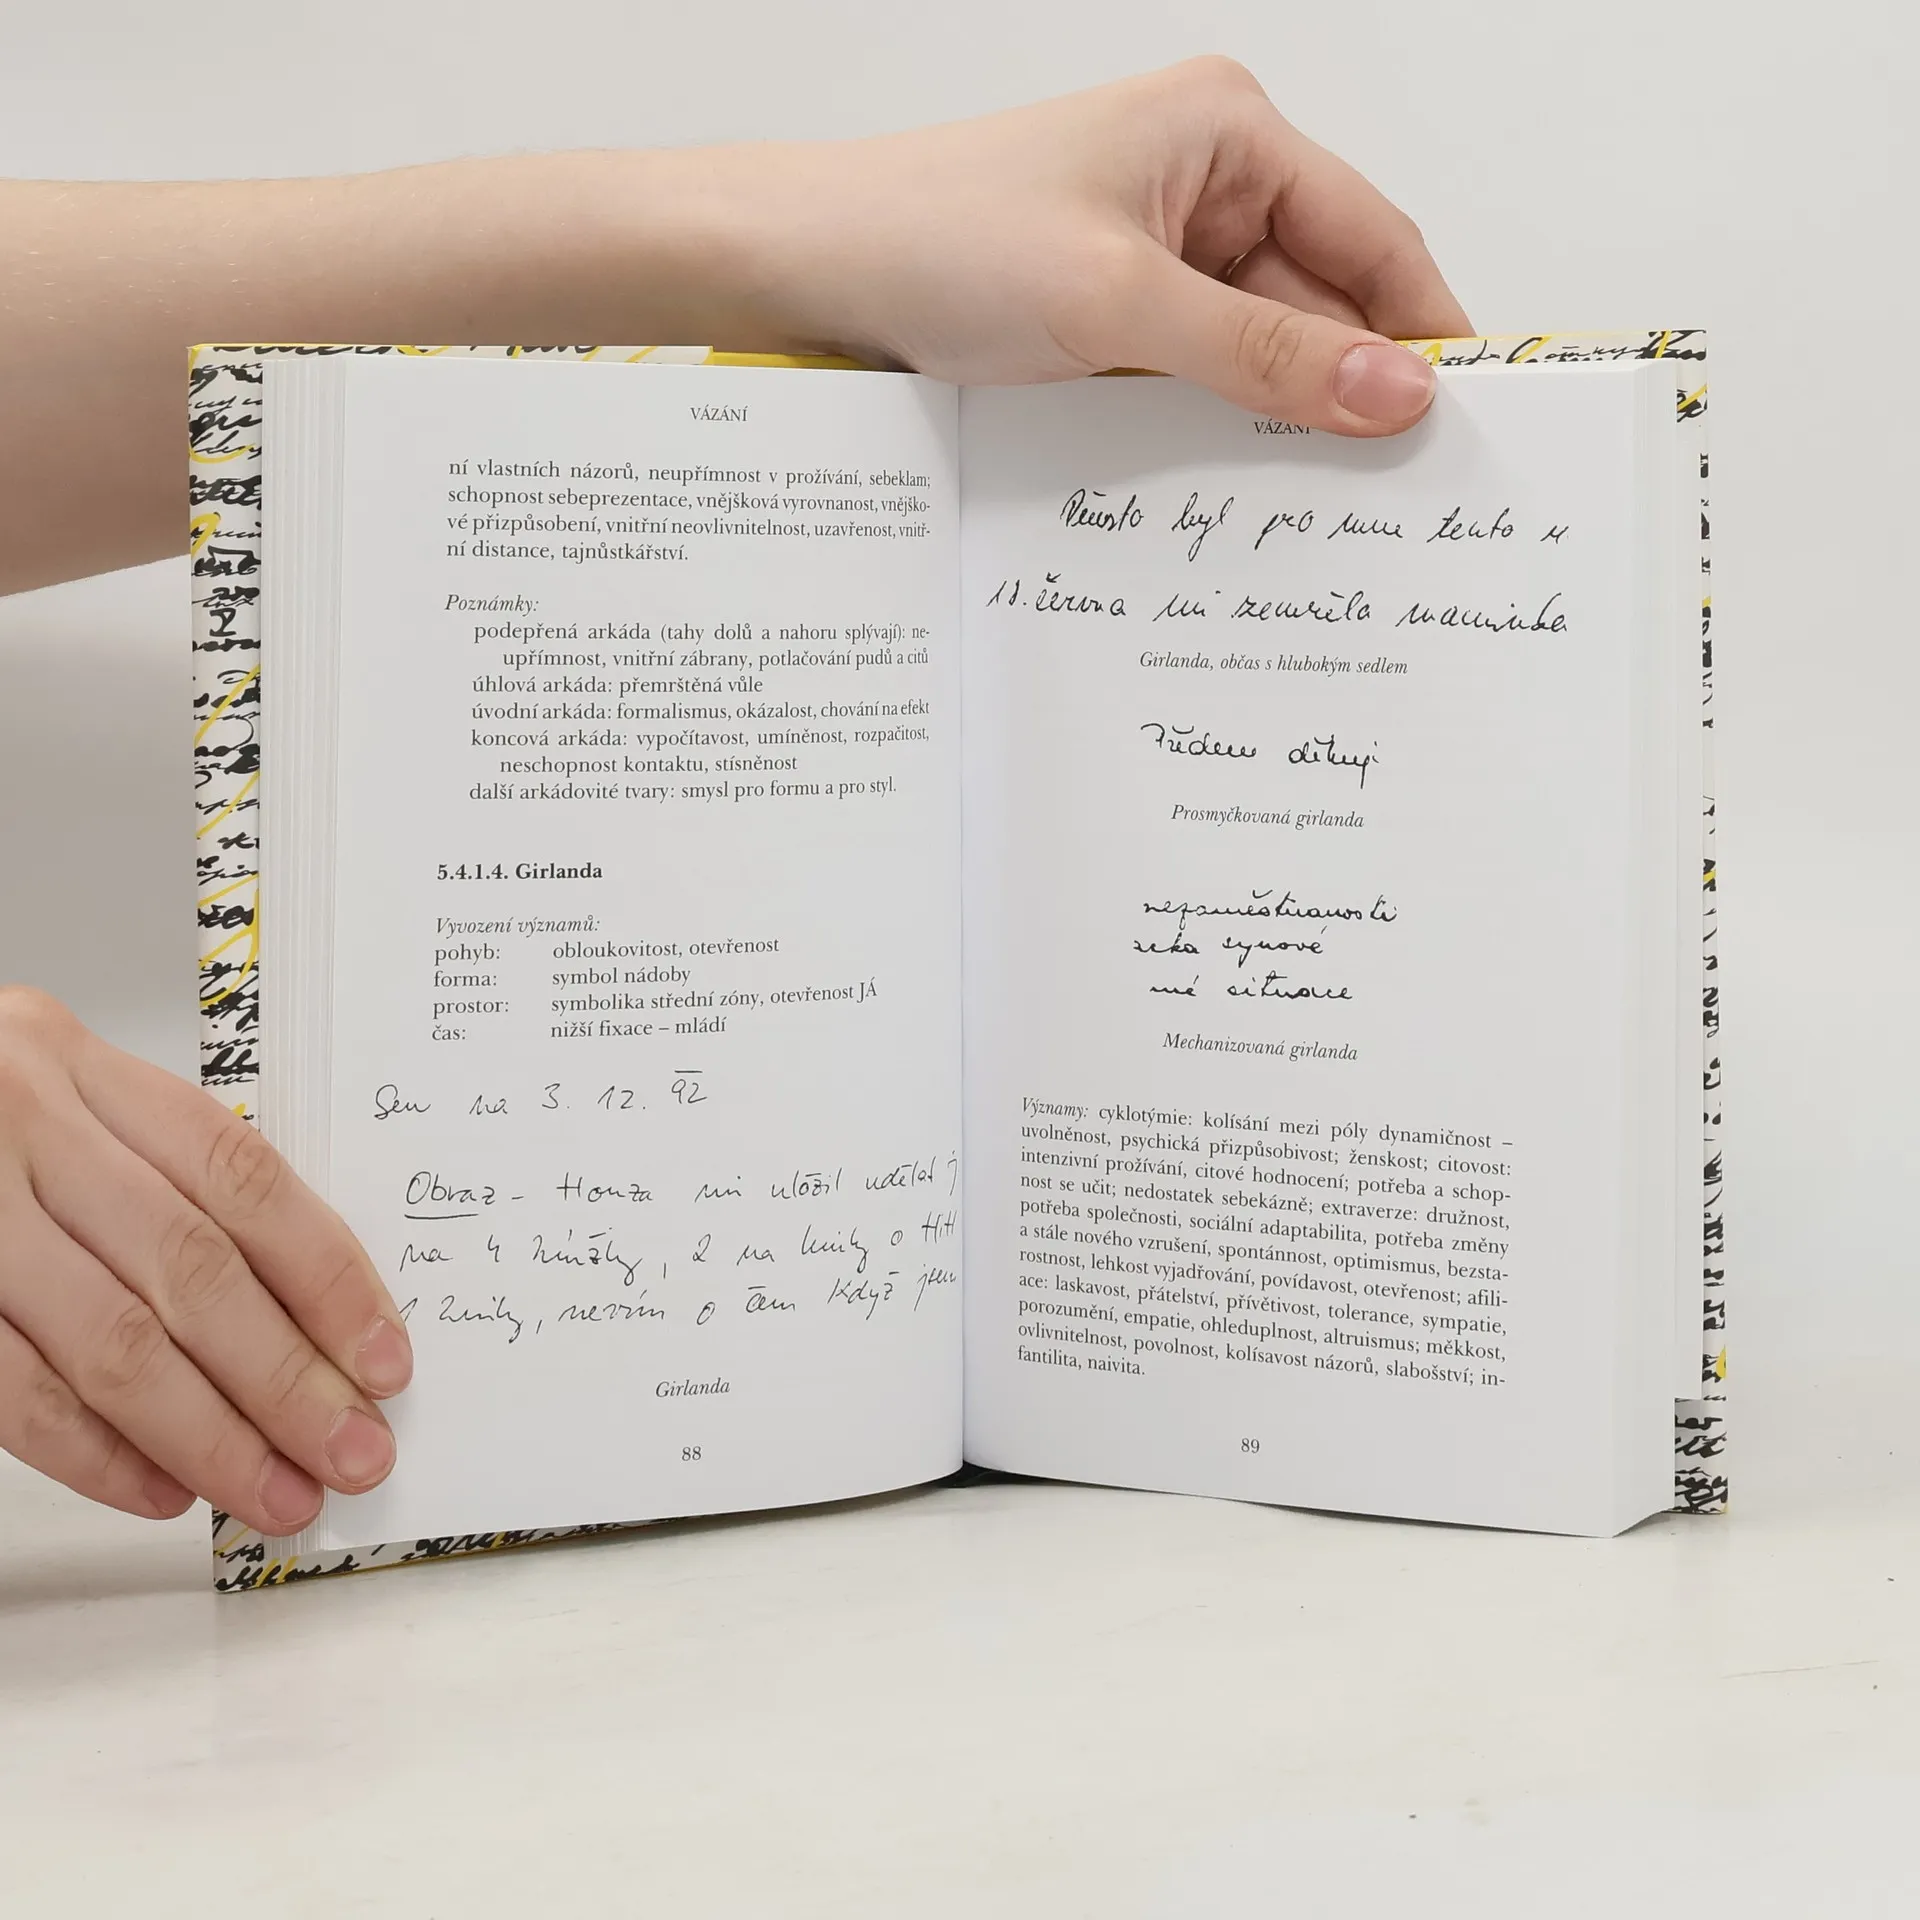 VÁZÁNÍ
ní vlastních názorů, neupřímnost v prožívání, sebeklam;
schopnost sebeprezentace, vnějšková vyrovnanost, vnějško-
vé přizpůsobení, vnitřní neovlivnitelnost, uzavřenost, vnitř-
ní distance, tajnůstkářství.
Poznámky:
podepřená arkáda (tahy dolů a nahoru splývají): ne-
upřímnost, vnitřní zábrany, potlačování pudů a citů
úhlová arkáda: přemrštěná vůle
úvodní arkáda: formalismus, okázalost, chování na efekt
koncová arkáda: vypočítavost, umíněnost, rozpačitost,
neschopnost kontaktu, stísněnost
další arkádovité tvary: smysl pro formu a pro styl.
5.4.1.4. Girlanda
Vyvození významů:
pohyb: obloukovitost, otevřenost
forma: symbol nádoby
prostor: symbolika střední zóny, otevřenost JÁ
čas: nižší fixace – mládí
Sen na 3. 12. 92
Obraz - Honza mi uložil udělat j
na 4 knížky, 2 na knihy o HiH
1 knihy, nevím o čem Když jsem
Girlanda
88
VÁZÁNÍ
byl pro mne tento
18. června mi zemřela maminka
Girlanda, občas s hlubokým sedlem
Předem děkuji
Prosmyčkovaná girlanda
nezaměstnanosti
synové
mé situace
Mechanizovaná girlanda
Významy: cyklotýmie: kolísání mezi póly dynamičnost –
uvolněnost, psychická přizpůsobivost; ženskost; citovost:
intenzivní prožívání, citové hodnocení; potřeba a schop-
nost se učit; nedostatek sebekázně; extraverze: družnost,
potřeba společnosti, sociální adaptabilita, potřeba změny
a stále nového vzrušení, spontánnost, optimismus, bezsta-
rostnost, lehkost vyjadřování, povídavost, otevřenost; afili-
ace: laskavost, přátelství, přívětivost, tolerance, sympatie,
porozumění, empatie, ohleduplnost, altruismus; měkkost,
ovlivnitelnost, povolnost, kolísavost názorů, slabošství; in-
fantilita, naivita.
89